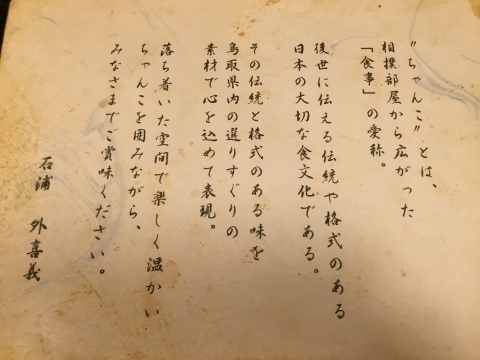 ”ちゃんこ”とは、
相撲部屋から広がった
「食事」の愛称。
後世に伝える伝統や格式のある
日本の大切な食文化である。
その伝統と格式のある味を
鳥取県内の選りすぐりの
素材で心を込めて表現。
落ち着いた空間で楽しく温かい
ちゃんこを囲みながら、
みなさまでご賞味ください。
石浦 外喜義